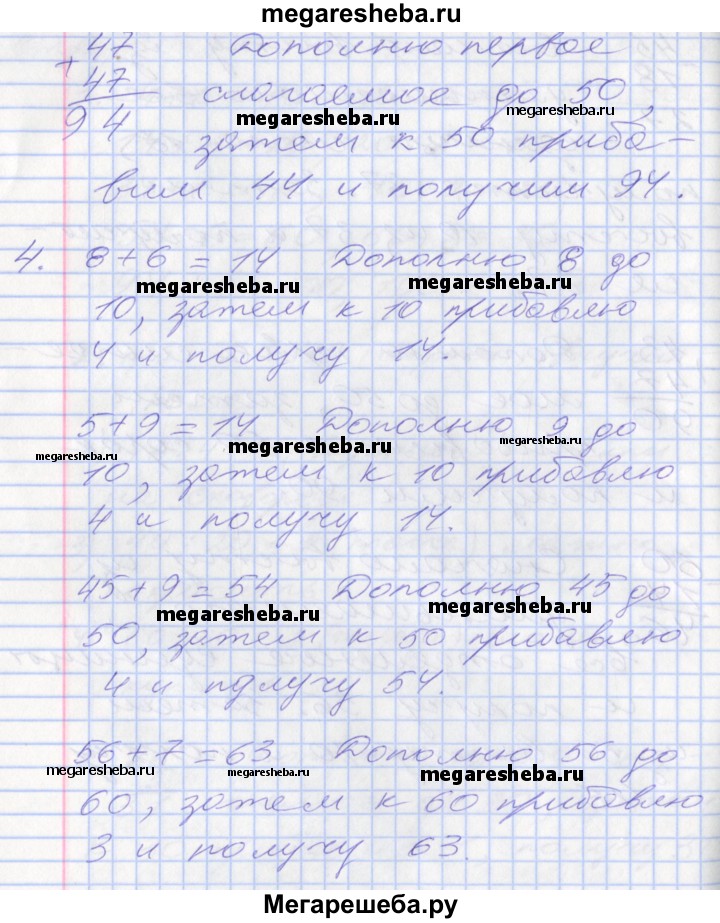 megaresheba.ru
+47 Дополню первое
47 слагаемое до 50,
megaresheba.ru megaresheba.ru
94 затем к 50 приба-
вим 44 и получим 94.
4. 8+6=14 Дополню 8 до
megaresheba.ru megaresheba.ru
10, затем к 10 прибавлю
4 и получу 14.
5+9=14 Дополню 9 до
megaresheba.ru megaresheba.ru megaresheba.ru
10, затем к 10 прибавлю
4 и получу 14.
45+9=54 Дополню 45 до
megaresheba.ru megaresheba.ru
50, затем к 50 прибавлю
4 и получу 54.
56+7=63 Дополню 56 до
megaresheba.ru megaresheba.ru megaresheba.ru
60, затем к 60 прибавлю
3 и получу 63.
Мегарешеба.ру